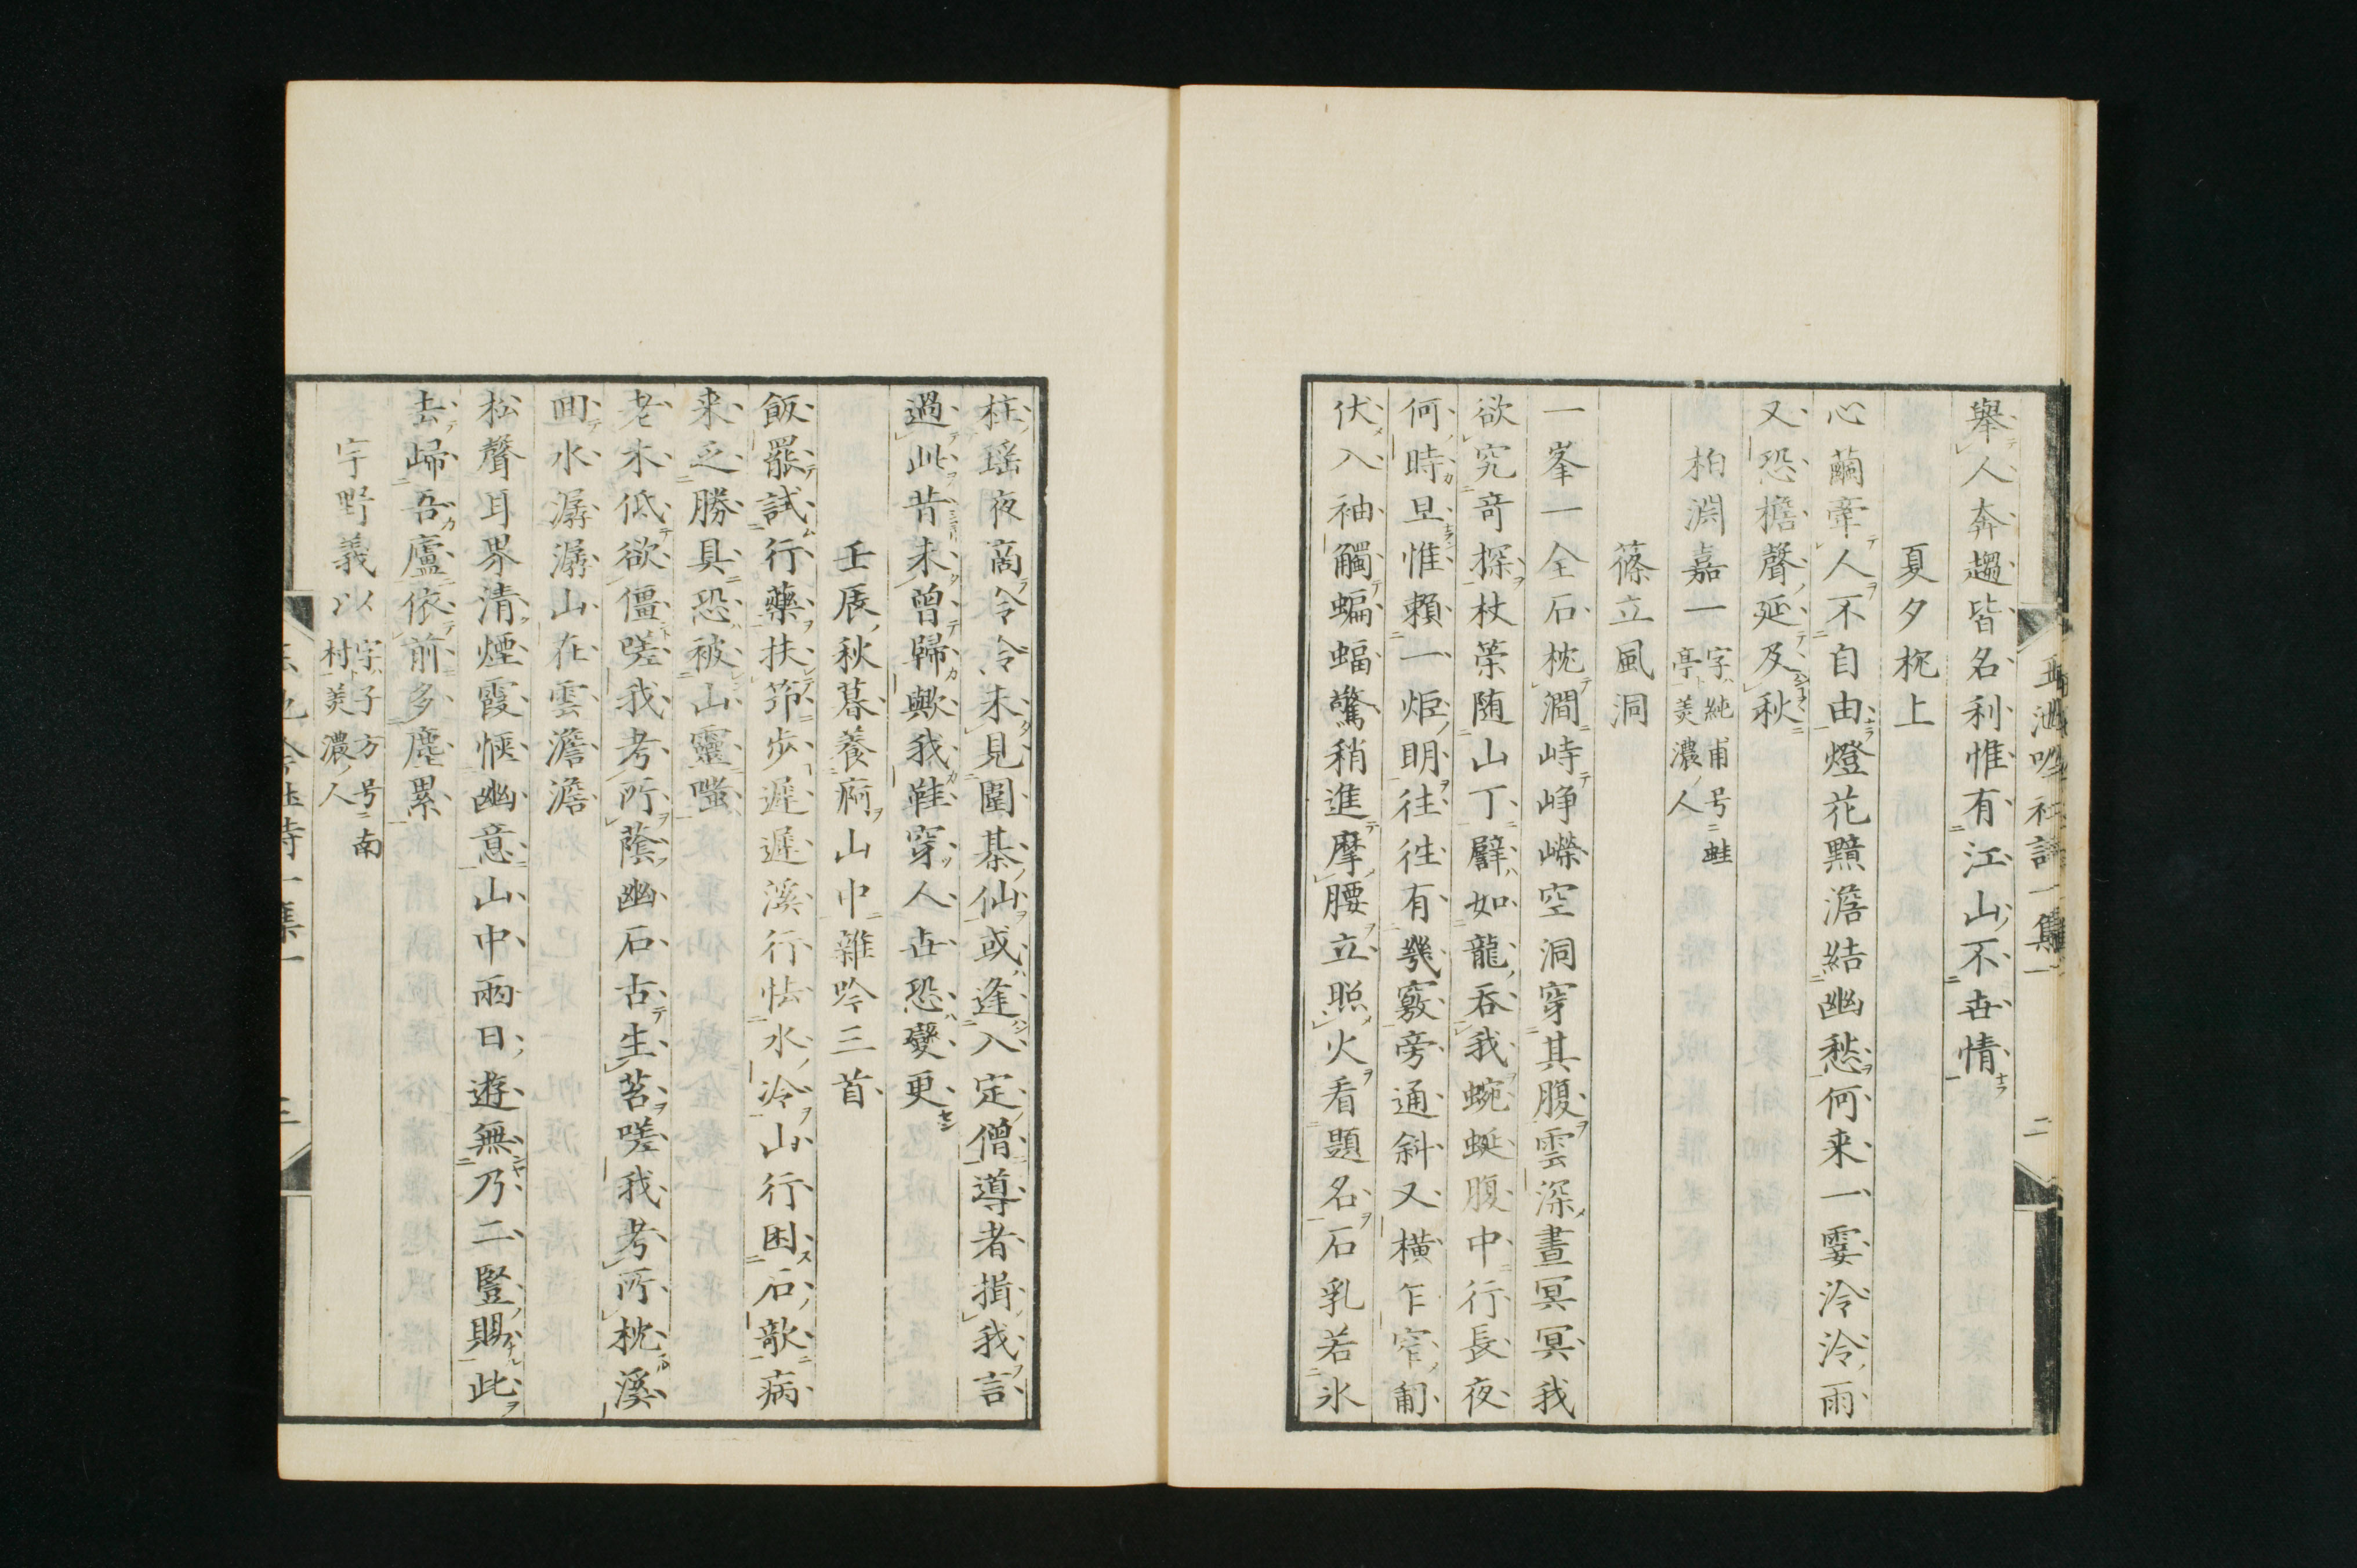 舉人奔趨皆名利惟有江山不世情
夏夕枕上
心繭牽人不自由燈花黯澹結幽愁何来一霎泠泠雨
又恐檐聲延及秋
柏淵嘉一字純甫号蛙
亭美濃人
篠立風洞
一峯一全石枕澗峙崢嶸空洞穿其腹雲深晝冥冥我
欲究竒探杖策随山丁闢如龍呑我蜿蜒腹中行長夜
何時旦惟頼一炬明往往有幾竅旁通斜又横乍窄匍
伏入袖觸蝙蝠驚稍進摩腰立照火看題名石乳若氷
柱瑶夜商泠泠未見圍棊仙或逢入定僧導者揖我言
過此昔未曾歸歟我鞋穿人世恐變更
壬辰秋暮養痾山中雜吟三首
飯罷試行藥扶筇歩遅遅溪行怯水冷山行困石欹病
来乏勝具恐被山靈嗤
老木低欲僵嗟我考所蔭幽石古生苔嗟我考所枕溪
回水潺潺山在雲澹澹
松聲耳界清煙霞愜幽意山中兩日遊無乃二豎賜此
去歸吾廬依前多塵累
宇野義以字子方号南
村美濃人
二